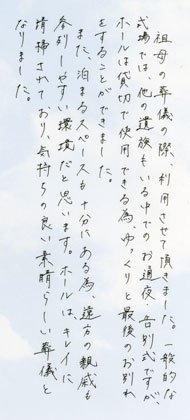 祖母の葬儀の際、利用させて頂きました。一般的な
式場では、他の遺族もいる中でのお通夜・告別式ですが、
ホールは貸切で使用できる為、ゆっくりと最後のお別れ
をすることができました。
また、泊まるスペースも十分にある為、遠方の親戚も
参列しやすい環境だと思います。ホールは、キレイに
清掃されており、気持ちの良い素晴らしい葬儀と
なりました。